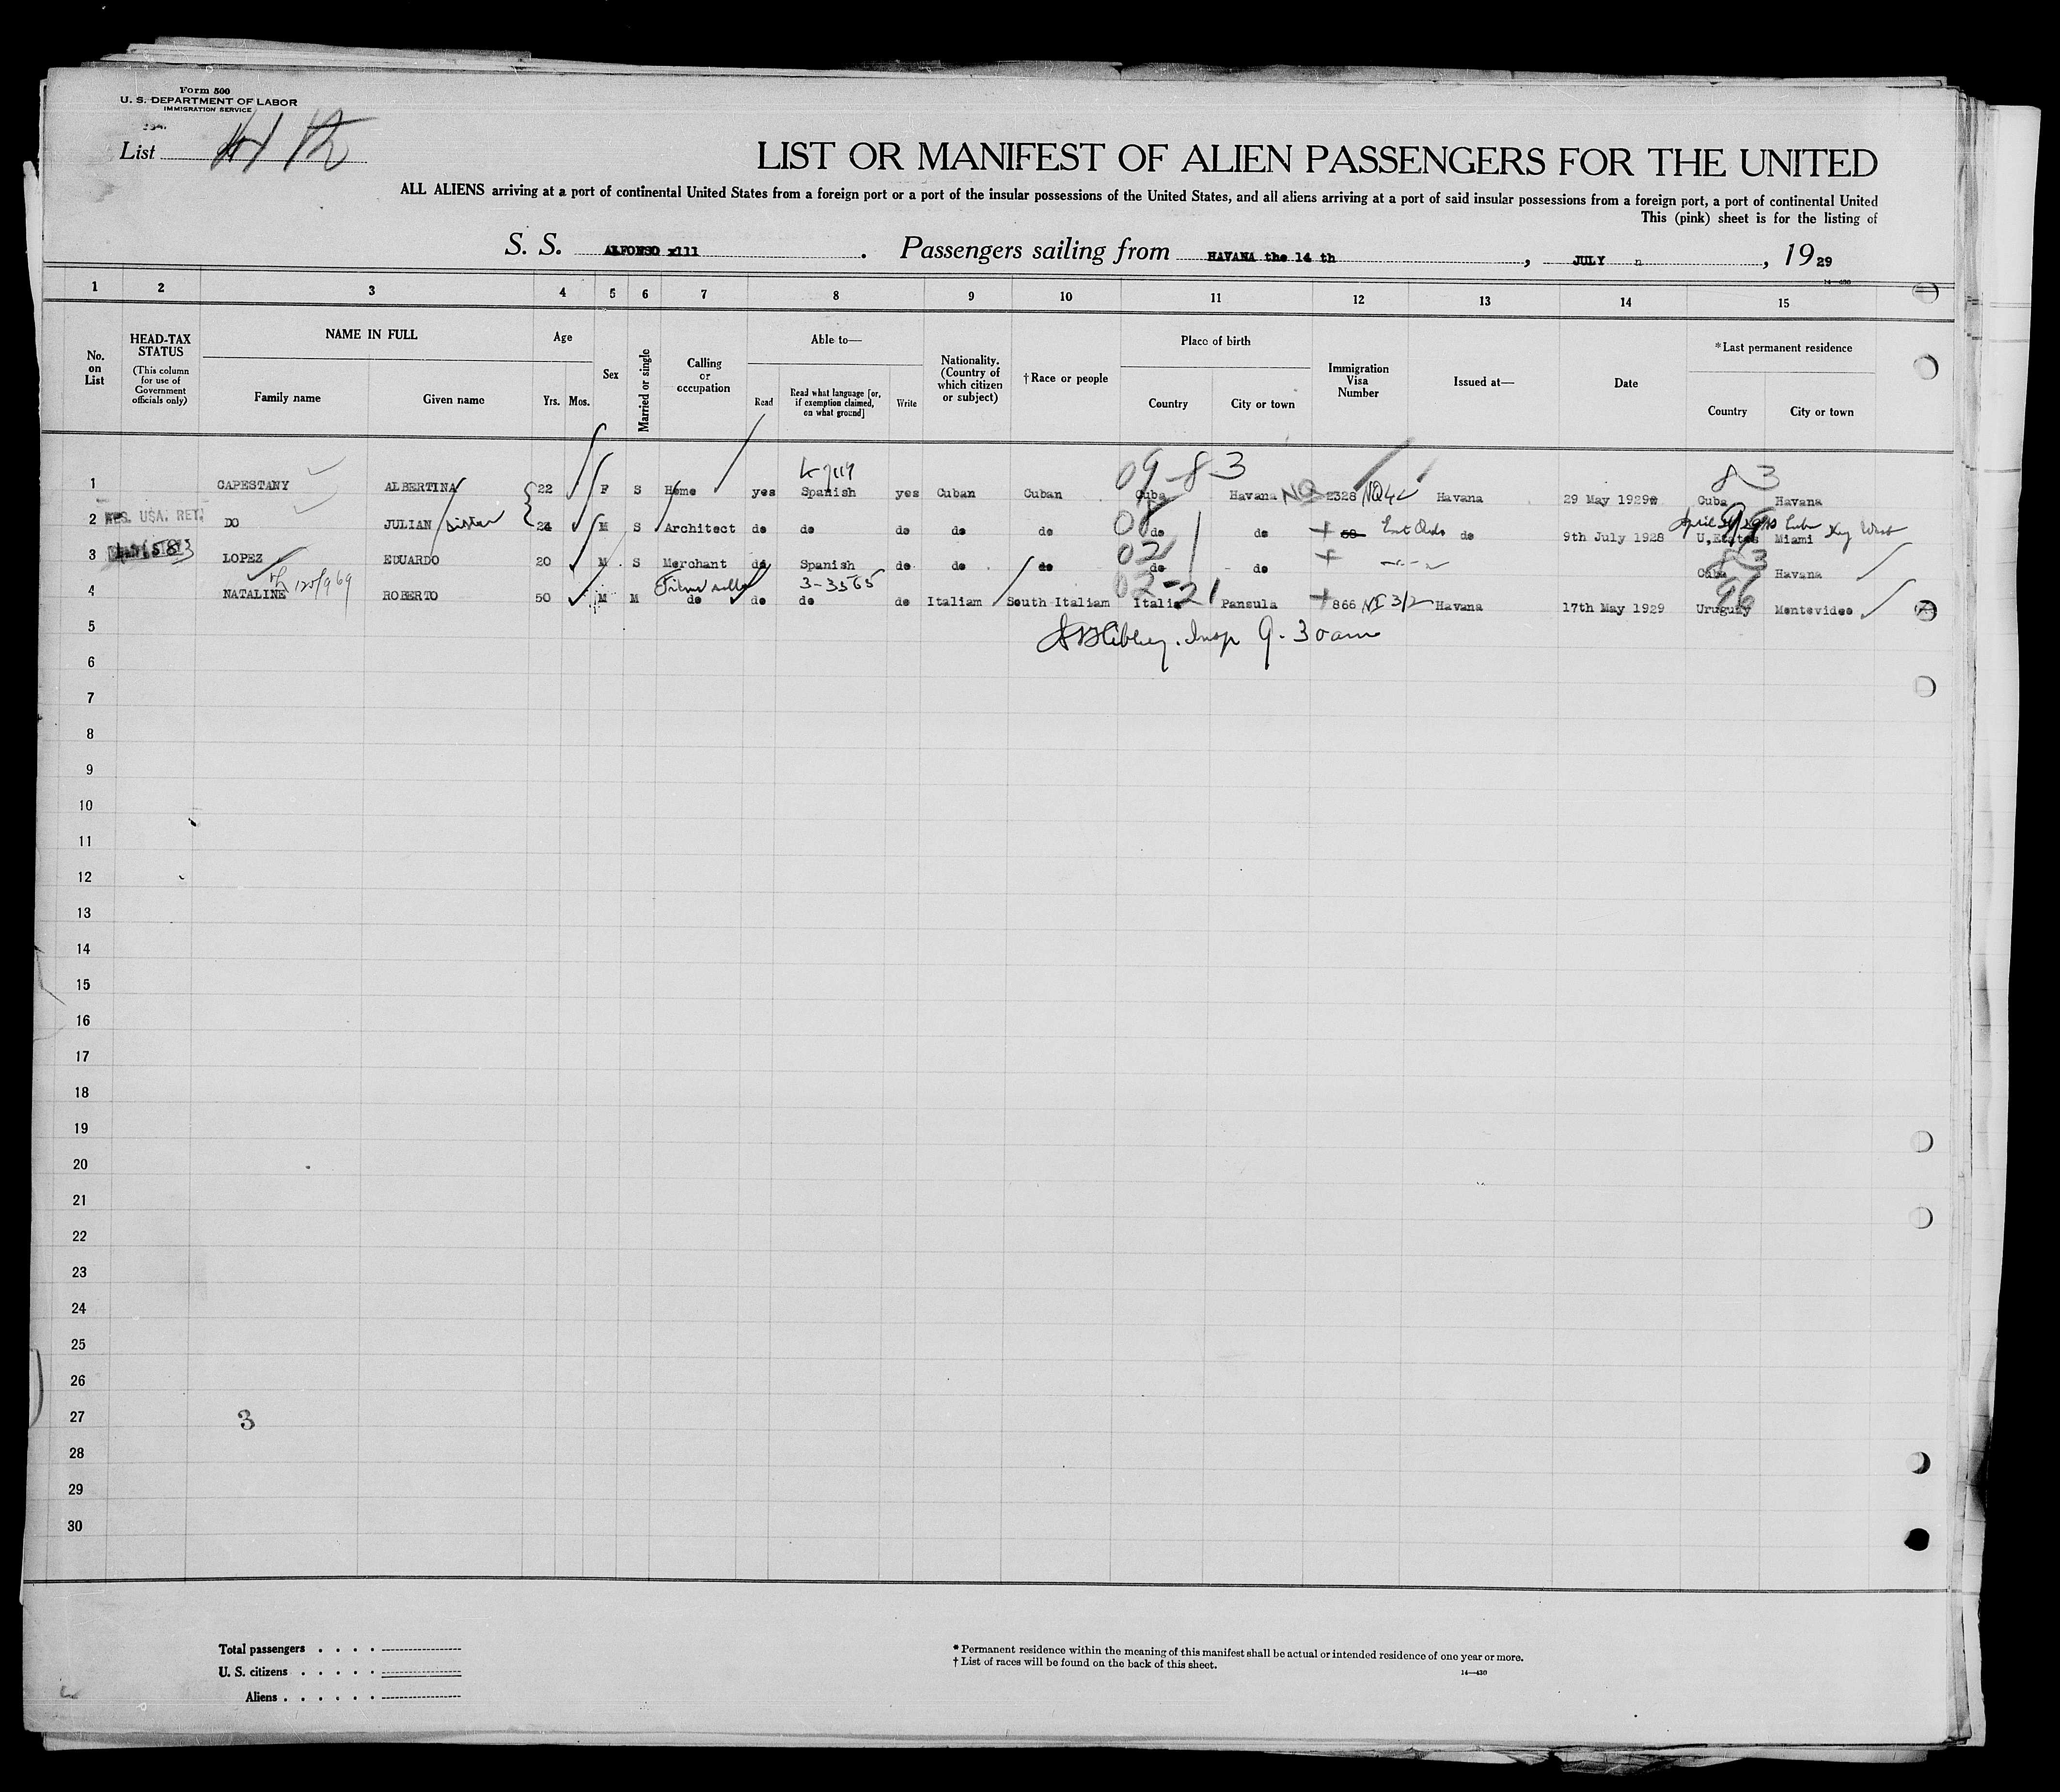 Form 500
U. S. DEPARTMENT OF LABOR
IMMIGRATION SERVICE
List
LIST OR MANIFEST OF ALIEN PASSENGERS FOR THE UNITED
ALL ALIENS arriving at a port of continental United States from a foreign port or a port of the insular possessions of the United States, and all aliens arriving at a port of said insular possessions from a foreign port, a port of continental United
This (pink) sheet is for the listing of
S. S. ALFONSO xlll . Passengers sailing from HAVANA the 14 th , JULY , 1929
14—430
1 2 3 4 5 6 7 8 9 10 11 12 13 14 15
No. on List
HEAD-TAX STATUS (This column for use of Government officials only)
NAME IN FULL
Family name Given name
Age
Yrs. Mos.
Sex
Married or single
Calling or occupation
Able to—
Read Read what language [or, if exemption claimed, on what ground] Write
Nationality. (Country of which citizen or subject)
†Race or people
Place of birth
Country City or town
Immigration Visa Number
Issued at—
Date
*Last permanent residence
Country City or town
09-8-3 83
1 CAPESTANY ALBERTINA 22 F S Home yes Spanish yes Cuban Cuban Cuba Havana NQ 2328 NQ4c Havana 29 May 1929 Cuba Havana
2 RES. USA. RET. DO JULIAN sister 24 M S Architect do do do do do do do 58 do 9th July 1928 U,Etates Miami Key West
3 LOPEZ EDUARDO 20 M S Merchant do Spanish do do do 02 do do Cuba Havana
3-3565
4 NATALINE ROBERTO 50 M M do do do do Italiam South Italiam Italia Pansula 866 Havana 17th May 1929 Uruguay Montevideo
Insp 9-30am
5
6
7
8
9
10
11
12
13
14
15
16
17
18
19
20
21
22
23
24
25
26
27 3
28
29
30
Total passengers . . . .
U. S. citizens . . . . .
Aliens . . . . . .
* Permanent residence within the meaning of this manifest shall be actual or intended residence of one year or more.
† List of races will be found on the back of this sheet.
14—430